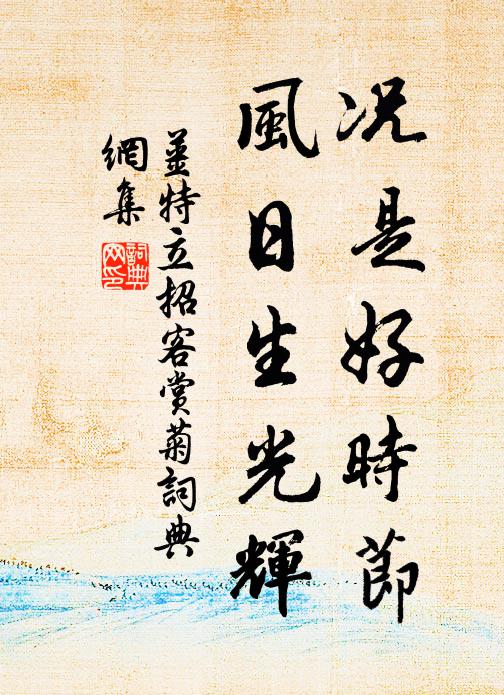 况是好時節
風日生光輝
薑特立招客賞菊詞典
網集
詞典
网印